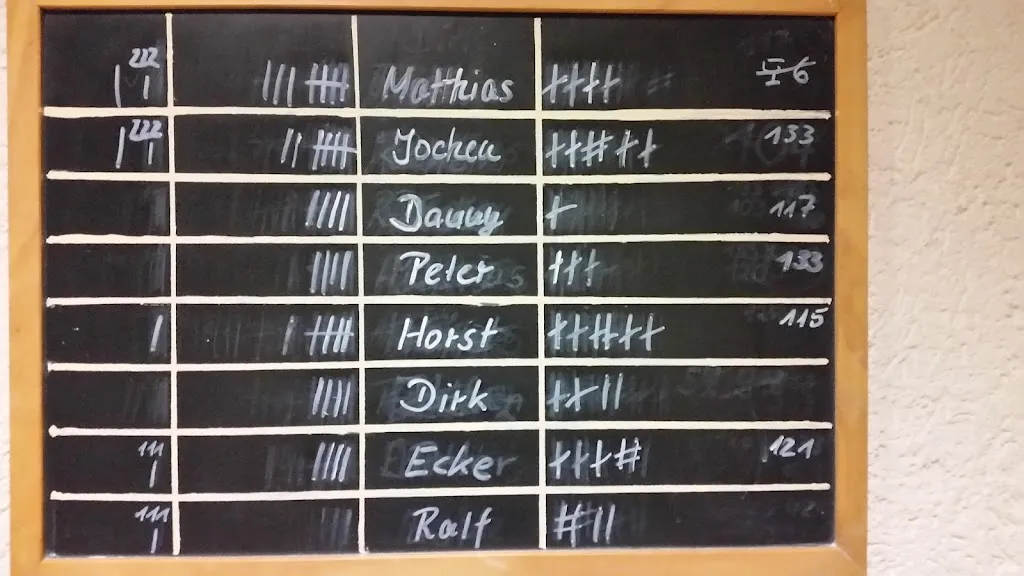 222 Mathias
222 Jochen 133
Danny 117
Peter 133
Horst 115
Dirk
111 Ecker 121
111 Ralf